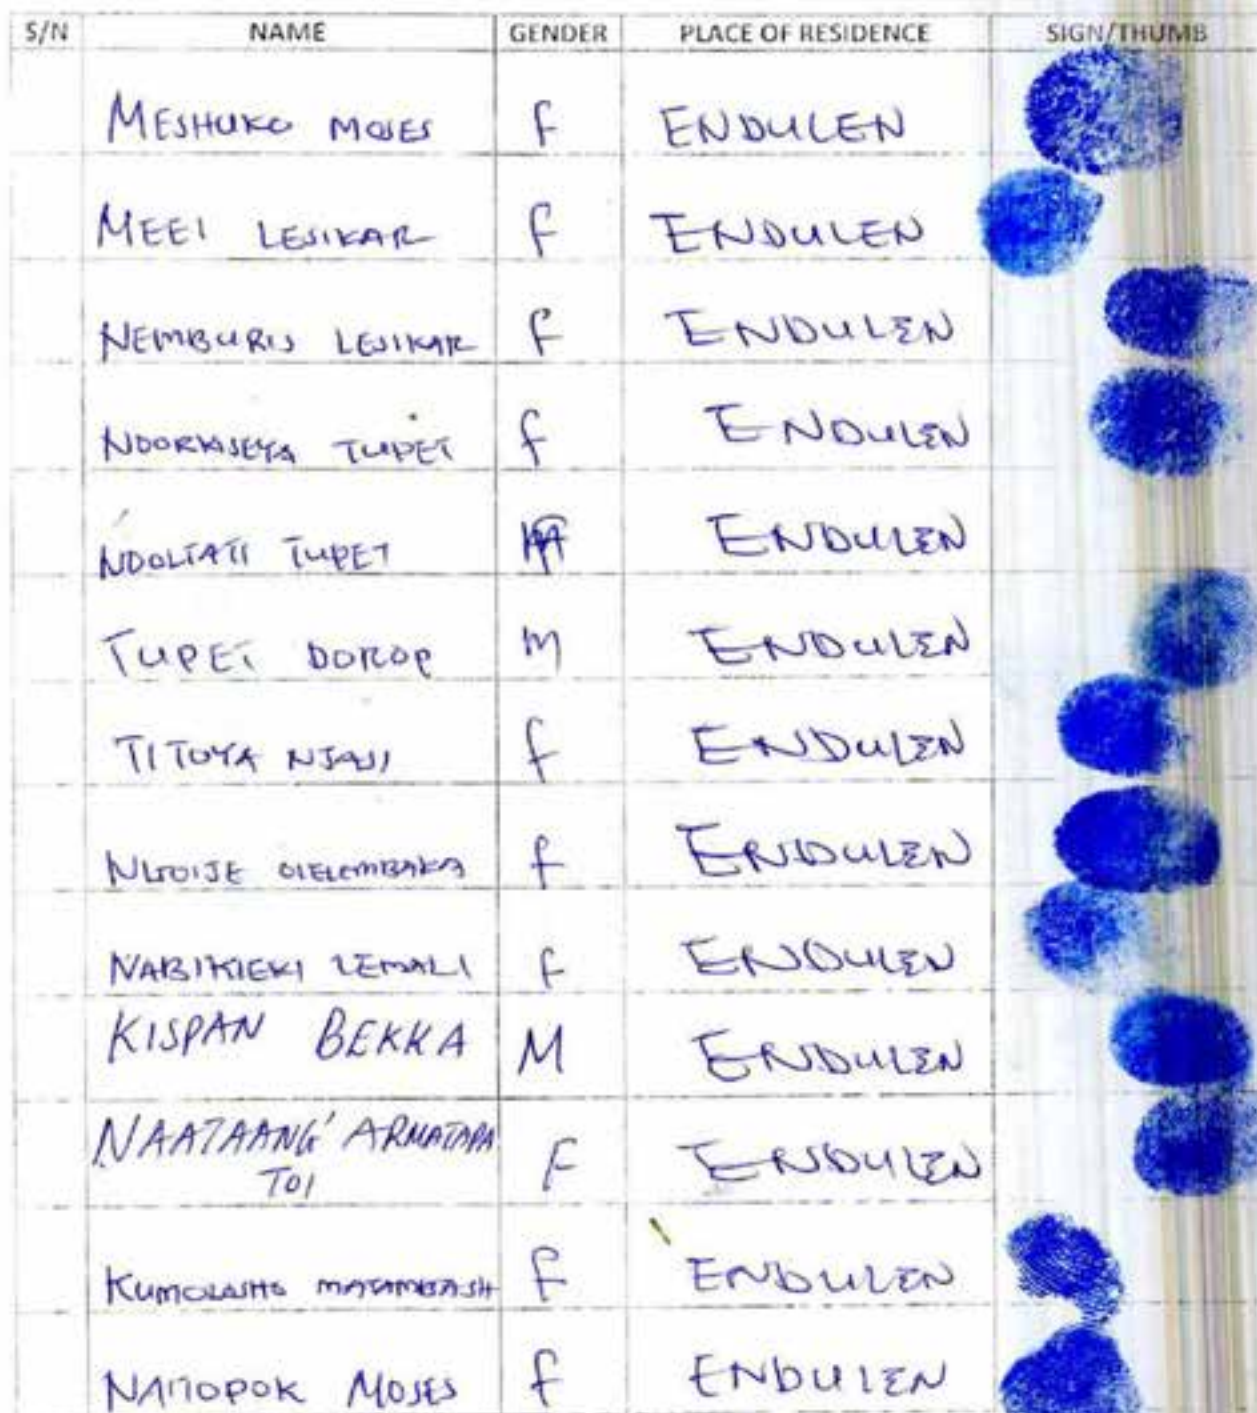 S/N NAME GENDER PLACE OF RESIDENCE SIGN/THUMB
MESHUKO MOSES F ENDULEN
MEEI LESIKAR F ENDULEN
NEMBURIS LESIKAR F ENDULEN
NDORKASEYA TUPET F ENDULEN
NDOLTATI TUPET ENDULEN
TUPET DOROP M ENDULEN
TITOYA NJASI F ENDULEN
OLELEMBAKA F ENDULEN
NABIKIEKI LEMALI F ENDULEN
KISPAN BEKKA M ENDULEN
NAATAANG' ARMATAPA F ENDULEN
TOI
MATAMBASH F ENDULEN
MOSES F ENDULEN